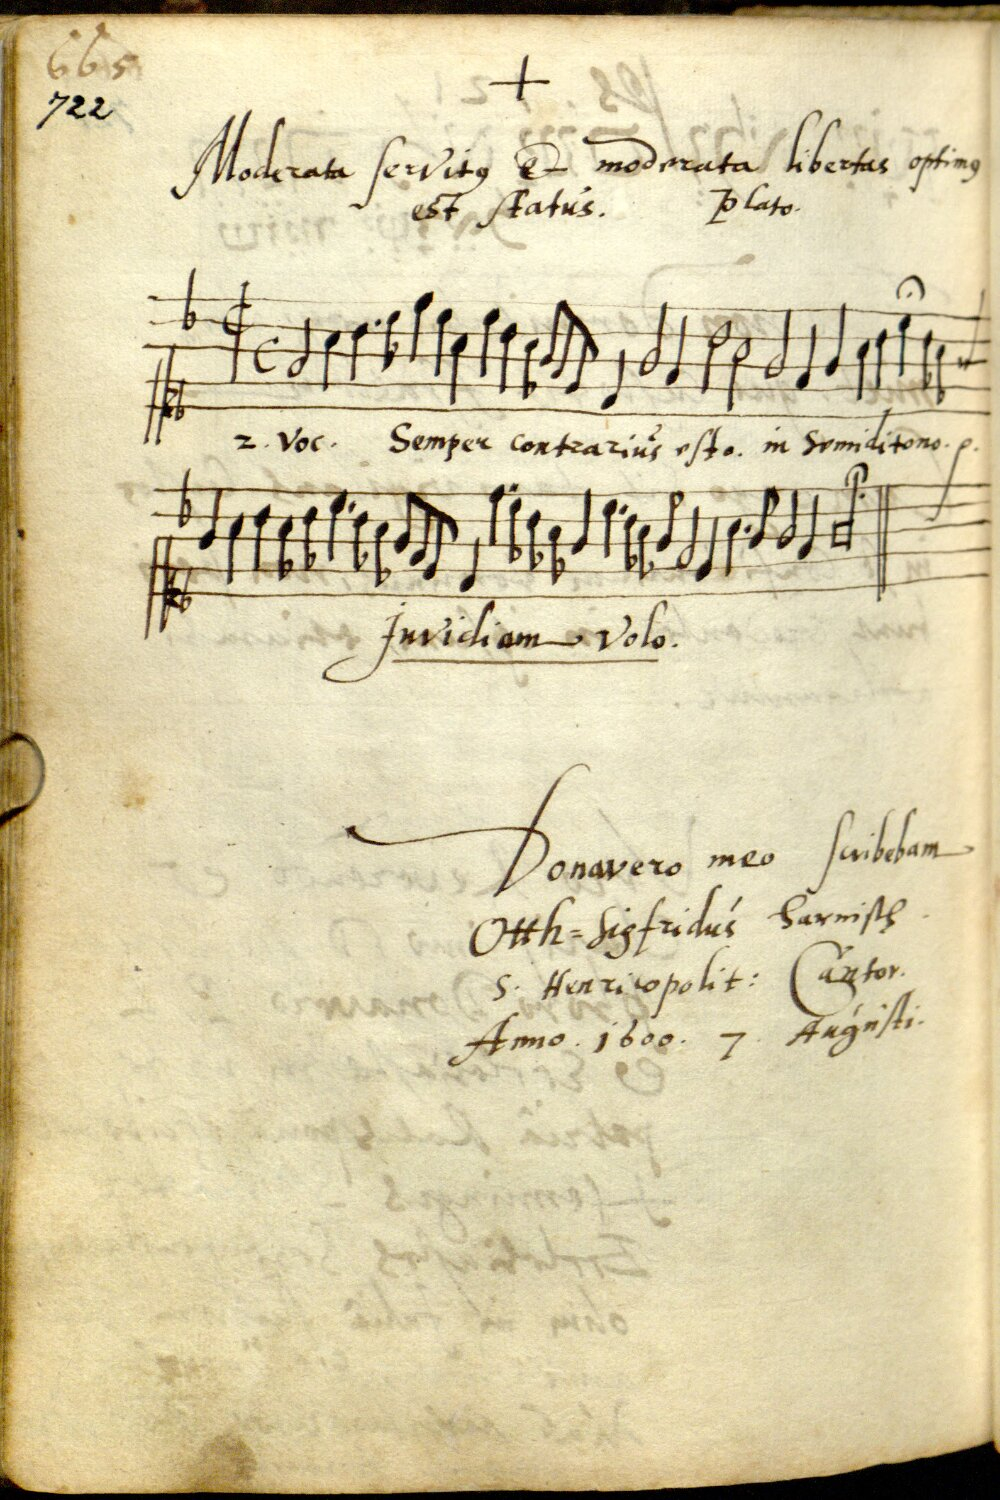 665
722
+
Moderata servitꝯ Et moderata libertas optimꝯ
est status. Plato.
2. Voc. Semper contrarius esto. in Semiditono. p.
Invidiam Volo.
Donavero meo scribebam
Otth=Sigfridus Harnisch
S. Henricopolit: Cantor.
Anno. 1600. 7. Augusti.